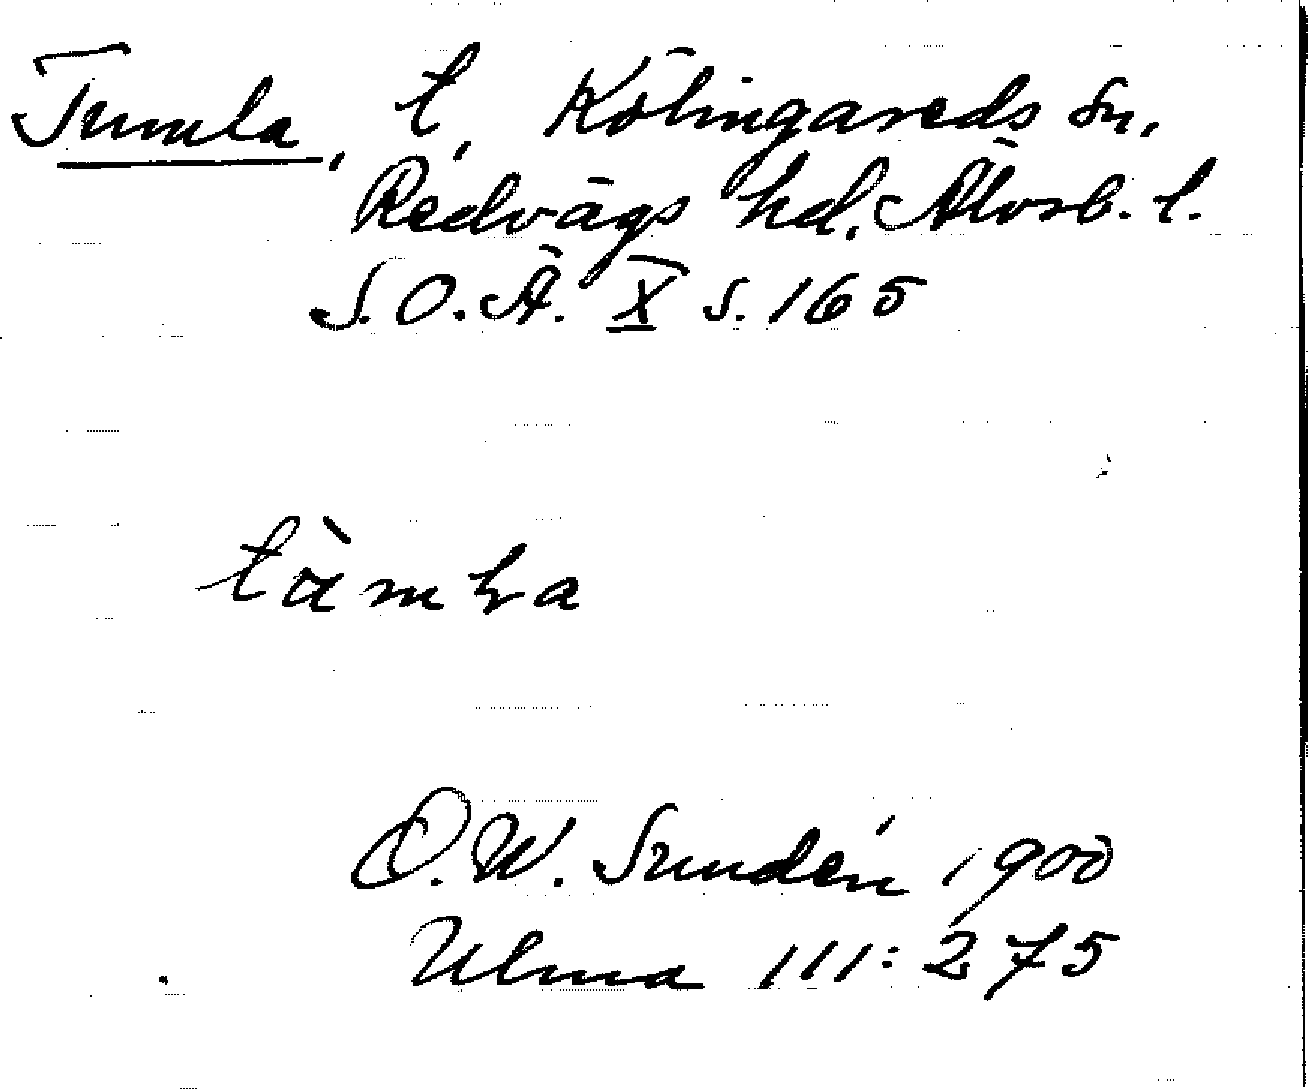 Tumla, t, Kölingareds sn,
Redvägs hd. Älvsb. l.
S.O.Ä. X s. 165
O.W. Sundén 1900
Ulma 111:275